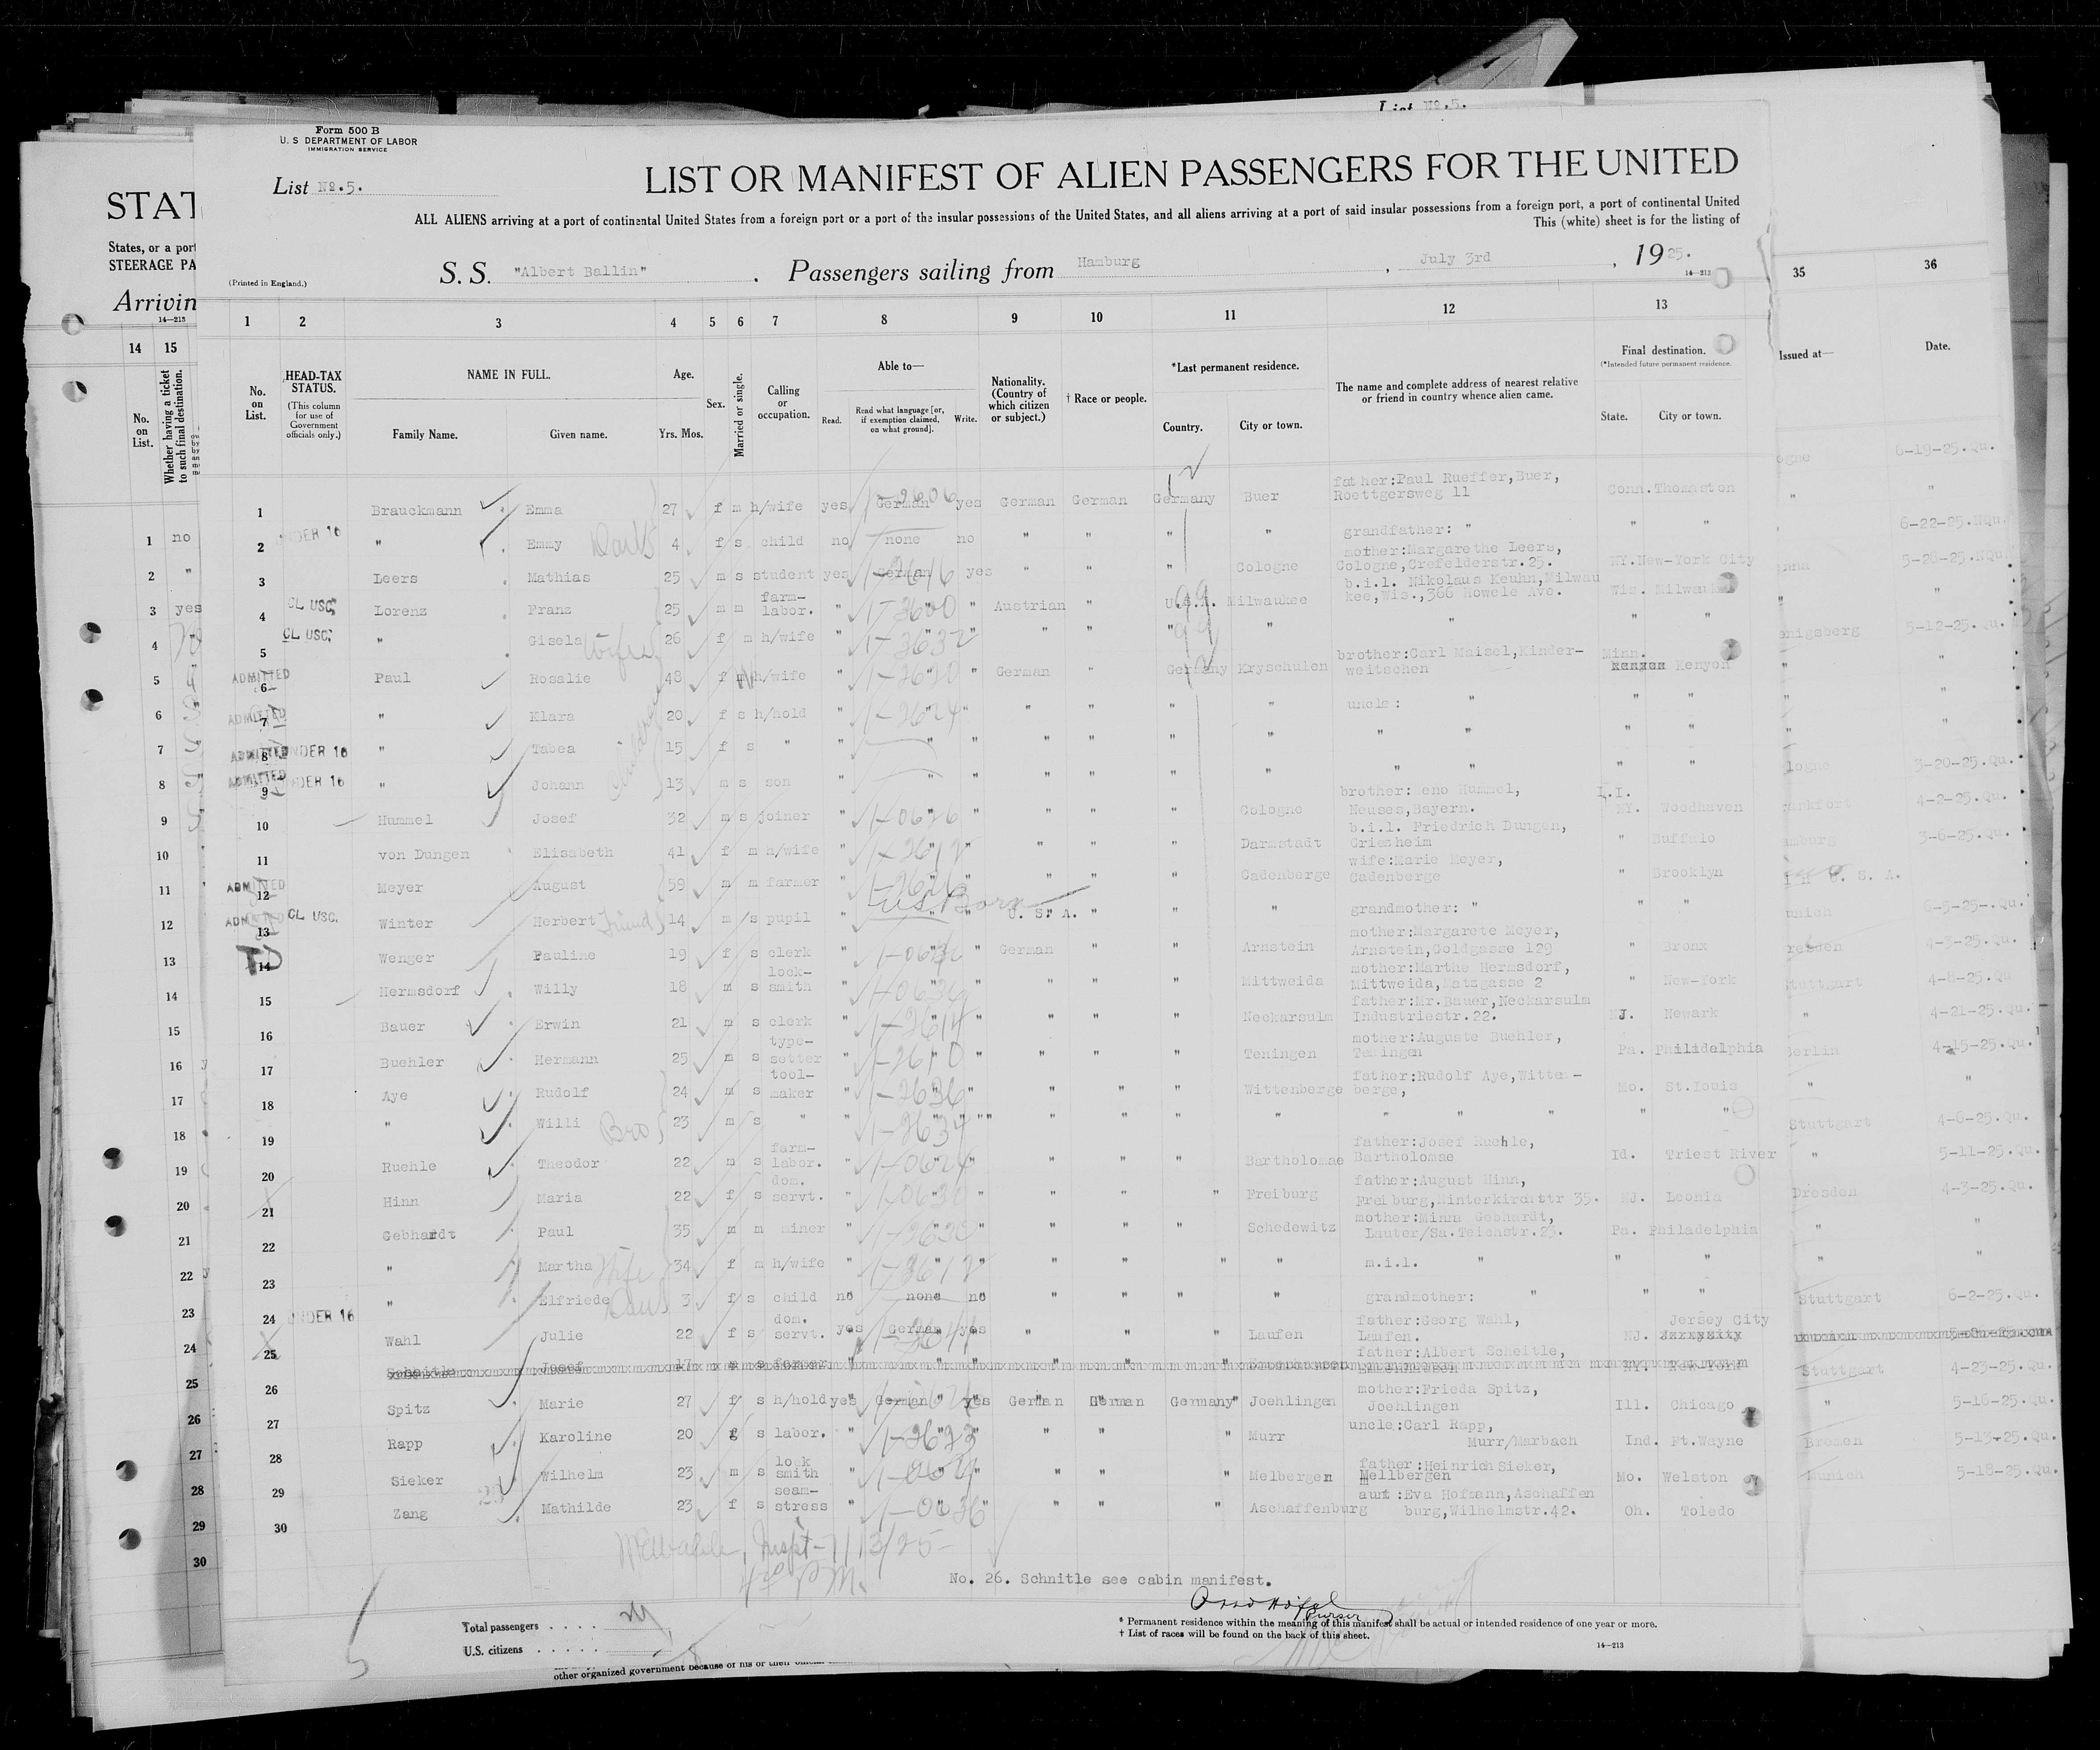 List No. 5.
Form 500 B
U. S DEPARTMENT OF LABOR
IMMIGRATION SERVICE
List No. 5.
LIST OR MANIFEST OF ALIEN PASSENGERS FOR THE UNITED
ALL ALIENS arriving at a port of continental United States from a foreign port or a port of the insular possessions of the United States, and all aliens arriving at a port of said insular possessions from a foreign port, a port of continental United
This (white) sheet is for the listing of
STAT
States, or a port
STEERAGE PA
Arrivin
14—213
(Printed in England.)
S. S. "Albert Ballin" . Passengers sailing from Hamburg , July 3rd , 1925.
14—213
1 2 3 4 5 6 7 8 9 10 11 12 13
14 15 35 36
No. on List.
HEAD-TAX STATUS.
(This column for use of Government officials only.)
NAME IN FULL.
Family Name. Given name.
Age.
Yrs. Mos.
Sex.
Married or single.
Calling or occupation.
Able to—
Read. Read what language [or, if exemption claimed, on what ground]. Write.
Nationality. (Country of which citizen or subject.)
† Race or people.
*Last permanent residence.
Country. City or town.
The name and complete address of nearest relative or friend in country whence alien came.
Final destination.
(*Intended future permanent residence.
State. City or town.
No. on List.
Whether having a ticket to such final destination.
Issued at— Date.
1 Brauckmann Emma 27 f m h/wife yes German yes German German Germany Buer father:Paul Rueffer,Buer, Roettgersweg 11 Conn. Thomaston
2 UNDER 16 " Emmy 4 f s child no none no " " " " grandfather: " " "
3 Leers Mathias 25 m s student yes German yes " " " Cologne mother:Margarethe Leers, Cologne,Crefelderstr.25. NY. New-York City
4 CL USC, Lorenz Franz 25 m m farm-labor. " " " Austrian " U.S.A. Milwaukee b.i.l. Nikolaus Keuhn,Milwau kee,Wis.,366 Howele Ave. Wis. Milwaukee
5 CL USC, " Gisela wife 26 f m h/wife " " " " " " " " " "
6 ADMITTED Paul Rosalie 48 f h/wife " " " German " Germany Kryschulen brother:Carl Maisel,Kinder-weitschen Minn. Kenyon
7 ADMITTED " Klara 20 f s h/hold " " " " " " " uncle: " " "
8 ADMITTED UNDER 16 " Tabea 15 f s " " " " " " " " " " " "
9 ADMITTED UNDER 16 " Johann 13 m s son " " " " " " " " " " "
10 Hummel Josef 32 m s joiner " " " " " " Cologne brother: Hummel, Neuses,Bayern. L.I. NY. Woodhaven
11 von Dungen Elisabeth 41 f m h/wife " " " " " " Darmstadt b.i.l. Friedrich Dungen, Griezheim " Buffalo
12 ADMITTED Meyer August 59 m m farmer " " " " " " Cadenberge wife:Marie Meyer, Cadenberge " Brooklyn
13 ADMITTED CL USC. Winter Herbert 14 m s pupil " US Born " U. S. A. " " " grandmother: " " "
14 Wenger Pauline 19 f s clerk " " " German " " Arnstein mother:Margarete Meyer, Arnstein,Goldgasse 129 " Bronx
15 Hermsdorf Willy 18 m s lock-smith " " " " " " Mittweida mother:Marthe Hermsdorf, Mittweida, 2 " New-York
16 Bauer Erwin 21 m s clerk " " " " " " Neckarsulm father:Mr.Bauer,Neckarsulm Industriestr.22. NJ. Newark
17 Buehler Hermann 25 m s type-setter " " " " " " Teningen mother:Auguste Buehler, Teningen Pa. Philidalphia
18 Aye Rudolf 24 m s tool-maker " " " " " " Wittenberge father:Rudolf Aye,Witten-berge, Mo. St.Louis
19 " Willi Bro 23 m s " " " " " " " " " " " "
20 Ruehle Theodor 22 m s farm-labor. " " " " " " Bartholomae father:Josef Ruehle, Bartholomae Id. Triest River
21 Hinn Maria 22 f s dom. servt. " " " " " " Freiburg father:August Hinn, Freiburg, 35. NJ. Leonia
22 Gebhardt Paul 35 m m miner " " " " " " Schedewitz mother:Minna Gebhardt, Lauter/Sa.Teichstr.23. Pa. Philadelphia
23 " Martha Wife 34 f m h/wife " " " " " " " m.i.l. " " "
24 UNDER 16 " Elfriede 3 f s child no none no " " " " grandmother: " " "
25 Wahl Julie 22 f s dom. servt. yes German yes " " " Laufen father:Georg Wahl, Laufen. NJ. Jersey City
26 Schnitle Josef 17 m s farmer " " " " " " father:Albert Scheitle, NY. New-York
27 Spitz Marie 27 f s h/hold yes German yes German German Germany Joehlingen mother:Frieda Spitz, Joehlingen Ill. Chicago
28 Rapp Karoline 20 f s labor. " " " " " " Murr uncle:Carl Rapp, Murr/Marbach Ind. Ft.Wayne
29 Sieker Wilhelm 23 m s lock smith " " " " " " Melbergen father:Heinrich Sieker, Mellbergen Mo. Welston
30 Zang Mathilde 23 f s seam-stress " " " " " " Aschaffenburg aunt :Eva Hofmann,Aschaffen burg,Wilhelmstr.42. Oh. Toledo
Inspt - 7/13/25 -
No. 26. Schnitle see cabin manifest.
Purser
Total passengers . . . .
U.S. citizens . . . . .
* Permanent residence within the meaning of this manifest shall be actual or intended residence of one year or more.
† List of races will be found on the back of this sheet.
14—213
other organized government because of his or their
1 no
2 "
3 yes
4
5
6
7
8
9
10
11
12
13
14
15
16
17
18
19
20
21
22
23
24
25
26
27
28
29
30
6-19-25.Qu.
" "
6-22-25.NQu.
5-28-25.NQu.
" "
5-12-25.Qu.
3-20-25.Qu.
4-2-25.Qu.
3-6-25.Qu.
U. S. A.
6-5-25-.Qu.
4-3-25.Qu.
Stuttgart 4-8-25.Qu
" 4-21-25.Qu.
Berlin 4-15-25.Qu.
" "
Stuttgart 4-6-25.Qu.
" 5-11-25.Qu.
Dresden 4-3-25.Qu.
" "
" "
Stuttgart 6-2-25.Qu.
Stuttgart 4-23-25.Qu.
" 5-16-25.Qu.
Bremen 5-13-25.Qu.
Munich 5-18-25.Qu.